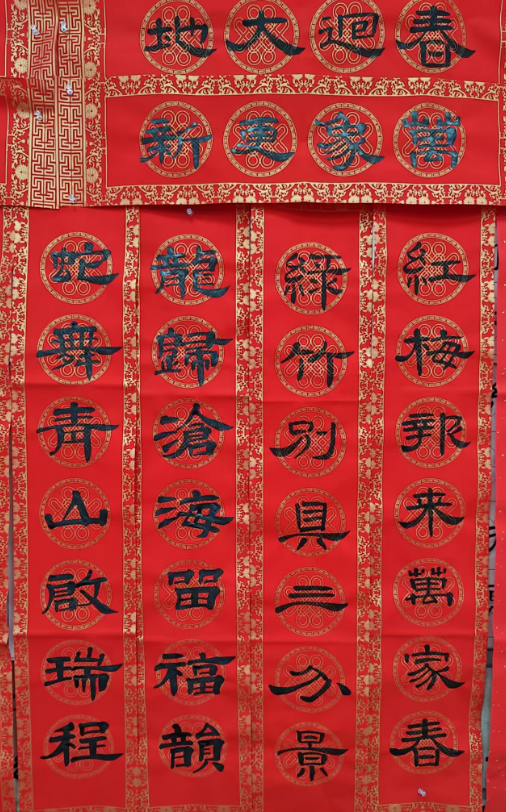 春迴大地
萬家更新
紅梅報来萬家春
綠竹別具三分景
龍歸滄海留福韻
蛇舞青山啟瑞程